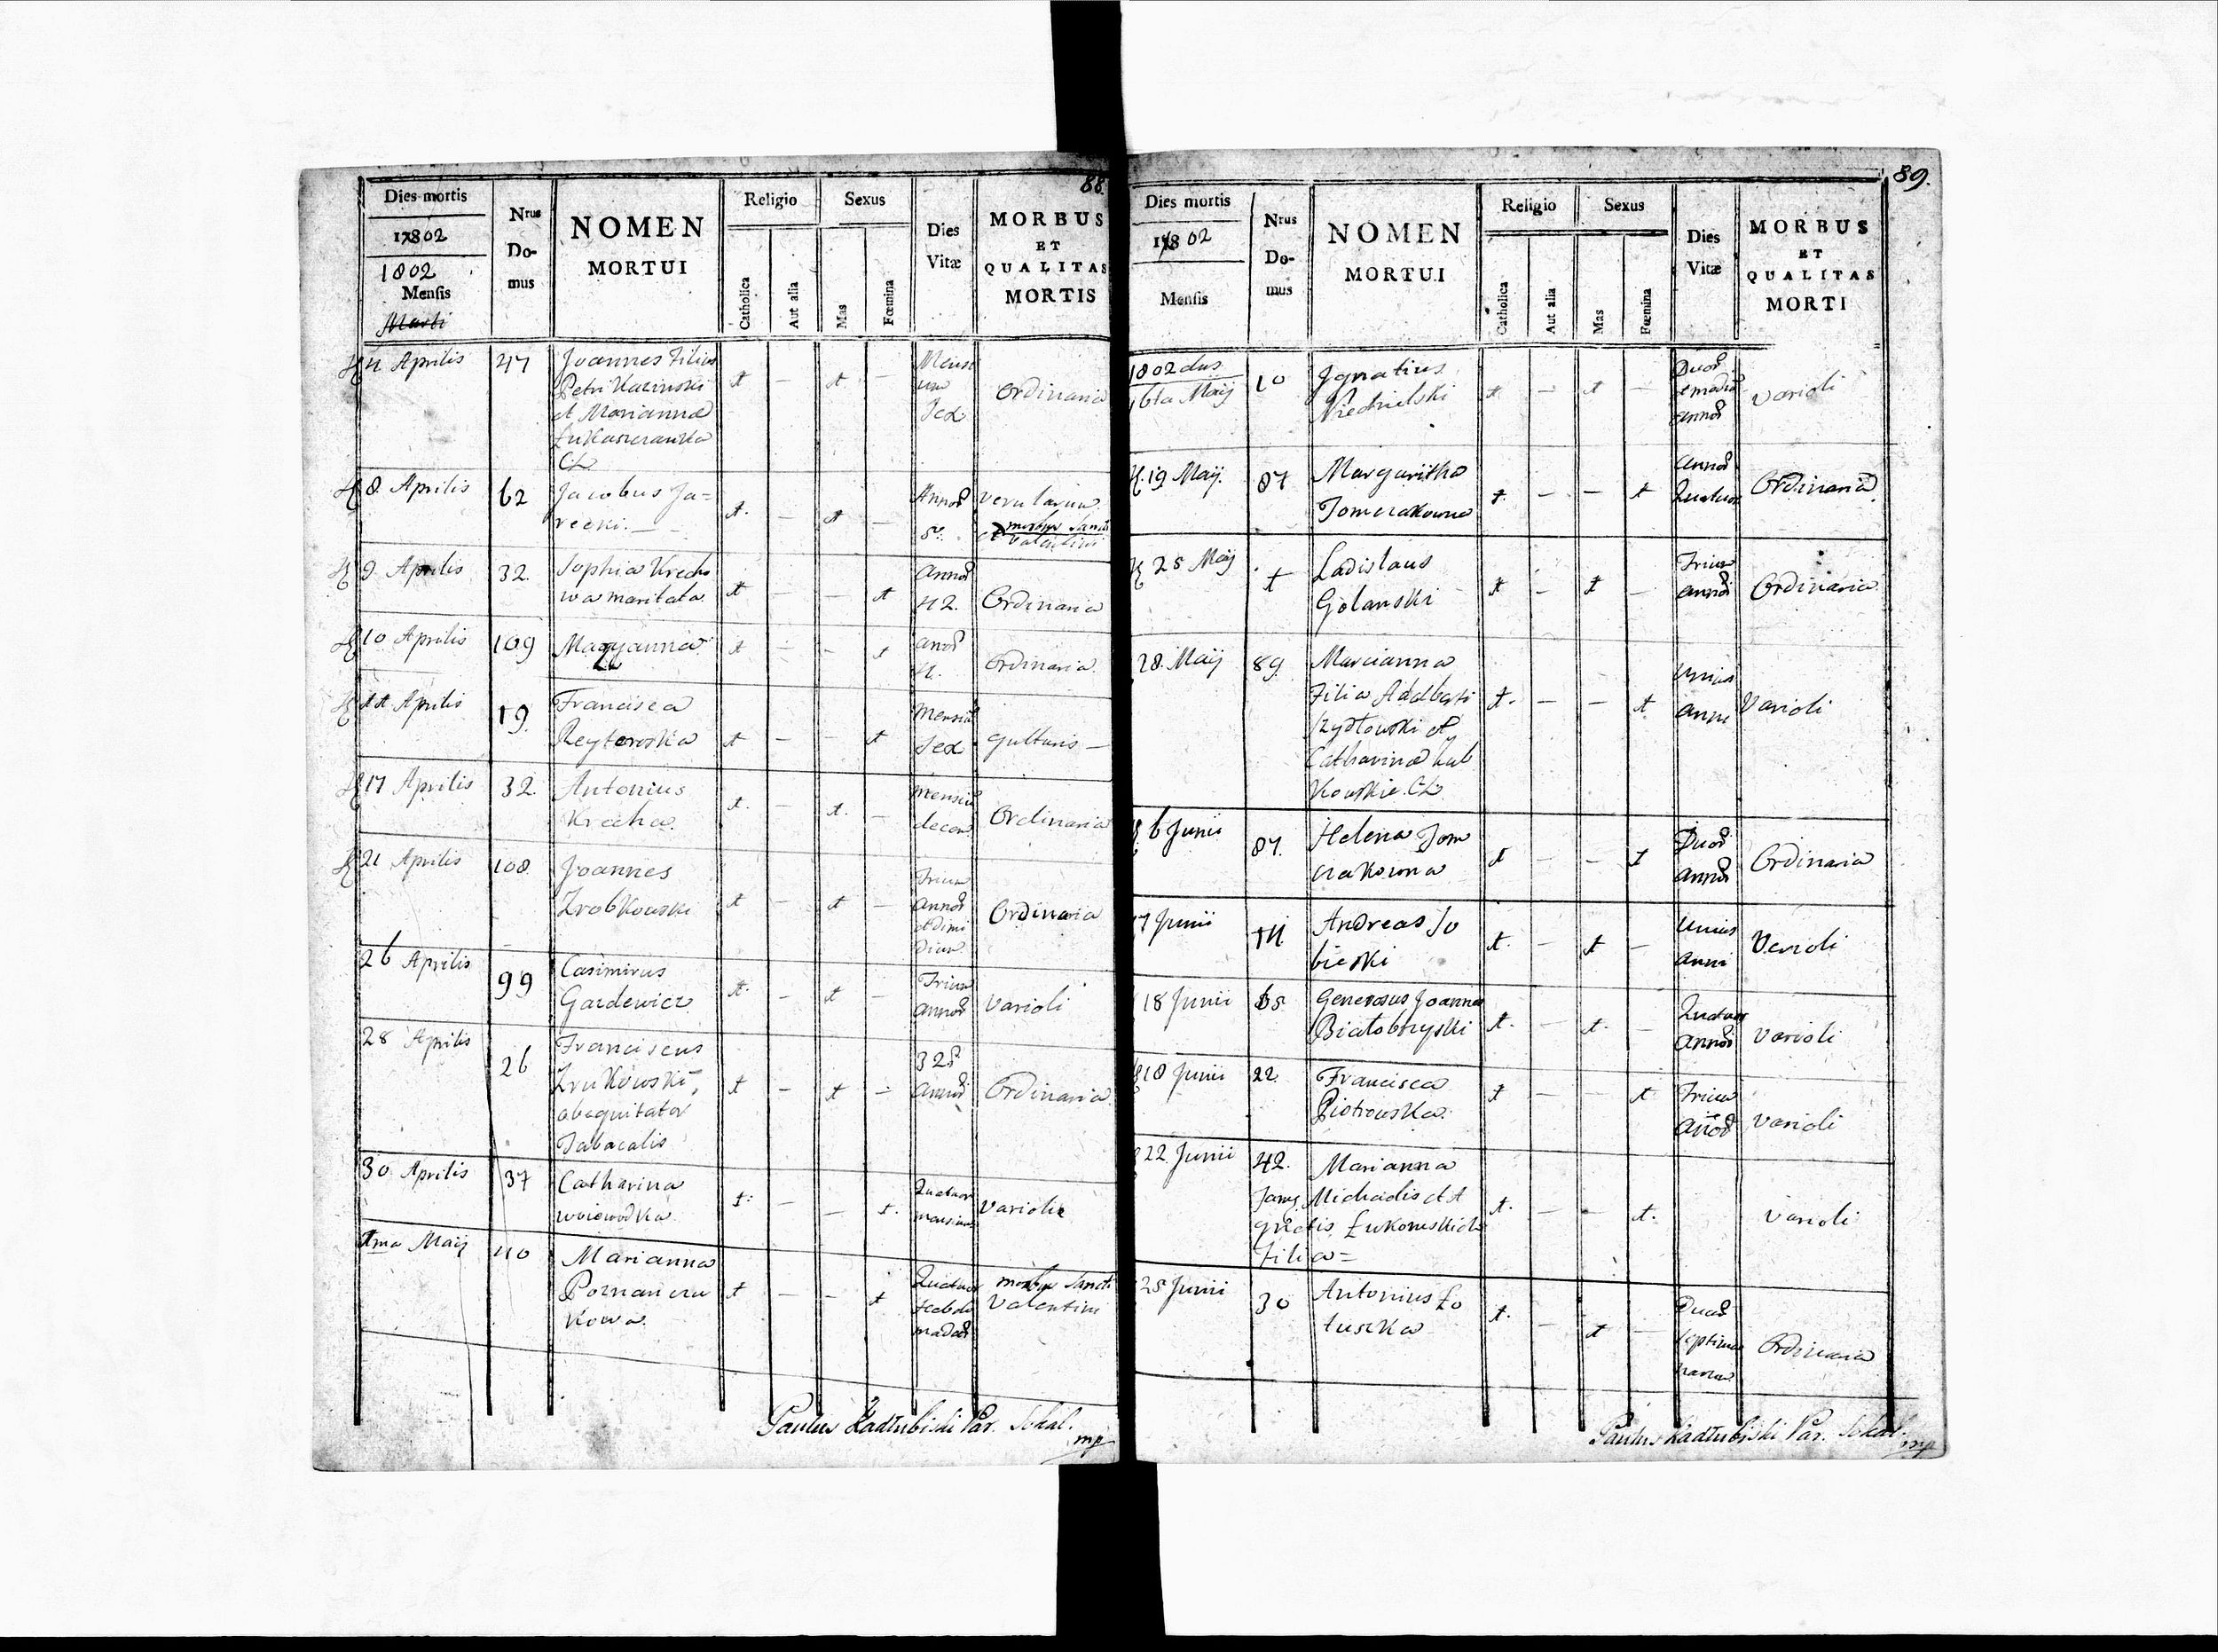 88.
Dies mortis
17802
1802
Mensis
Nrus
Do-
mus
NOMEN
MORTUI
Religio
Catholica
Aut alia
Sexus
Mas
Fœmina
Dies
Vitæ
MORBUS
ET
QUALITAS
MORTIS
4 Aprilis 47 Joannes Filius
Petri
et Mariannæ
CL
t — t —
Sex
Ordinaria
8 Aprilis 62 Jacobus Ja=
recki. —
t. — t —
Annor
5.
morbus Sancti
Valentini
9 Aprilis 32. Sophia Krecho
wa maritata
t — — t
Annor
42.
Ordinaria
10 Aprilis 109 Maryanna
t — — t
4.
Ordinaria
11 Aprilis 19. Francisca
Reyterowska
t — — t
Mensiu
Sex
gutturis —
17 Aprilis 32. Antonius
Krecha.
t. — t. —
Mensiu
decem
Ordinaria
21 Aprilis 108. Joannes
Zrobkouski
t — t —
Trium
Annor
et dimi
dium
Ordinaria
26 Aprilis 99 Casimirus
Gardewicz
t. — t —
Trium
Annor
Varioli
28 Aprilis 26 Franciscus
Zrukowski,
abequitator
Tabacalis
t — t —
Annor
Ordinaria
30 Aprilis 37 Catharina
woiewodka
t: — — t.
Quatuor
mensium
Variolie
1ma Maij 40 Marianna
Poznancza
kowa.
t — — t
Quatuor
hebdo
madar
morbus Sancti
Valentini
Paulus Kadłubiski Par. Sokal.
mp
89.
Dies mortis
17802
Mensis
Nrus
Do-
mus
NOMEN
MORTUI
Religio
Catholica
Aut alia
Sexus
Mas
Fœmina
Dies
Vitæ
MORBUS
ET
QUALITAS
MORTI
1802 dus
16ta Maij 10 Ignatius
Niedzielski
t — t —
Duor
et media
Annor
Varioli
19 Maij. 87 Margaritha
Tomczakowna
t. — — t
Annor
Quatuor
Ordinaria
25 Maij t Ladislaus
Golanski
t — t —
Trium
Annor
Ordinaria
28. Maij 89. Marcianna
Filia Adalberti
Szydłowski et
Catharinæ
CL
t. — — t
Unius
Anni
Varioli
6 Junii 87. Helena Tom
czakowna
t — — t
Duor
Annor
Ordinaria
7 Junii 14. Andreas So
bieski
t. — t —
Unius
Anni
Varioli
18 Junii 65. Generosus Joannes
Białobrzyski
t. — t. —
Quatuor
Annor
Varioli
18 Junii 22. Francisca
Piotrouska.
t — — t
Trium
Varioli
22 Junii 42. Marianna
Michaelis et A
gnetis Łukomskich
filia=
t. — — t.
Varioli
25 Junii 30 Antonius Ło
tuszka
t. — t —
Duar
septima
narum
Ordinaria
Paulus Kadłubiski Par. Sokal.
mp